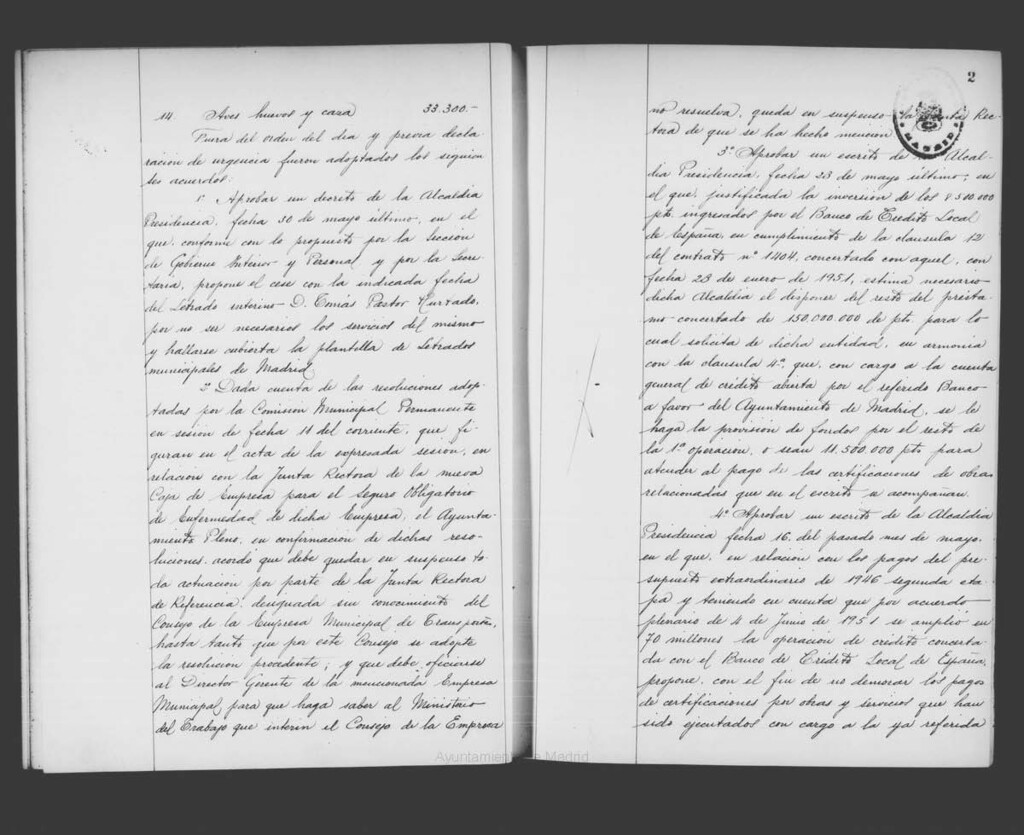 14 Aves huevos y caza 33.300.-
Fuera del orden del dia y previa decla
racion de urgencia fueron adoptados los siguien
tes acuerdos.
1º Aprobar un decreto de la Alcaldia
Presidencia, fecha 30 de mayo último, en el
que, conforme con lo propuesto por la Sección
de Gobierno Interior y Personal y por la Secre
taria, propone el cese con la indicada fecha
del Letrado interino D. Tomás Pastor Hurtado,
por no ser necesarios los servicios del mismo
y hallarse cubierta la plantilla de Letrados
municipales de Madrid.
2º Dada cuenta de las resoluciones adop
tadas por la Comision Municipal Permanente
en sesion de fecha 11 del corriente, que fi
guran en el acta de la expresada sesion, en
relacion con la Junta Rectora de la nueva
Caja de Empresa para el Seguro Obligatorio
de Enfermedad de dicha Empresa, el Ayunta-
miento Pleno, en confirmacion de dichas reso-
luciones, acordó que debe quedar en suspenso to
da actuacion por parte de la Junta Rectora
de Referencia, designada sin conocimiento del
Consejo de la Empresa Municipal de Transportes,
hasta tanto que por este Consejo se adopte
la resolucion procedente; y que debe oficiarse
al Director Gerente de la mencionada Empresa
Municipal para que haga saber al Ministerio
del Trabajo que interin el Consejo de la Empresa
2
no resuelva, queda en suspenso la Junta Rec-
tora de que se ha hecho mencion
MADRID
3º Aprobar un escrito de la Alcal-
dia Presidencia, fecha 23 de mayo último, en
el que, justificada la inversion de los 8.510.000
pts. ingresados por el Banco de Credito Local
de España, en cumplimiento de la clausula 12
del contrato nº 1404, concertado con aquel, con
fecha 23 de enero de 1951, estima necesario
dicha Alcaldia el disponer del resto del présta-
mo concertado de 150.000.000 de pts. para lo
cual solicita de dicha entidad, en armonia
con la clausula 4ª, que, con cargo a la cuenta
general de crédito abierta por el referido Banco
a favor del Ayuntamiento de Madrid, se le
haga la provision de fondos por el resto de
la 1ª operacion, o sean 11.500.000 pts. para
atender al pago de las certificaciones de obras
relacionadas que en el escrito se acompañan.
4º Aprobar un escrito de la Alcaldia
Presidencia fecha 16, del pasado mes de mayo,
en el que, en relacion con los pagos del pre-
supuesto extraordinario de 1946 segunda eta-
pa y teniendo en cuenta que por acuerdo
plenario de 4 de Junio de 1951 se amplio en
70 millones la operacion de crédito concerta-
da con el Banco de Crédito Local de España,
propone, con el fin de no demorar los pagos
de certificaciones por obras y servicios que han
sido ejecutados con cargo a la ya referida
Ayuntamiento de Madrid